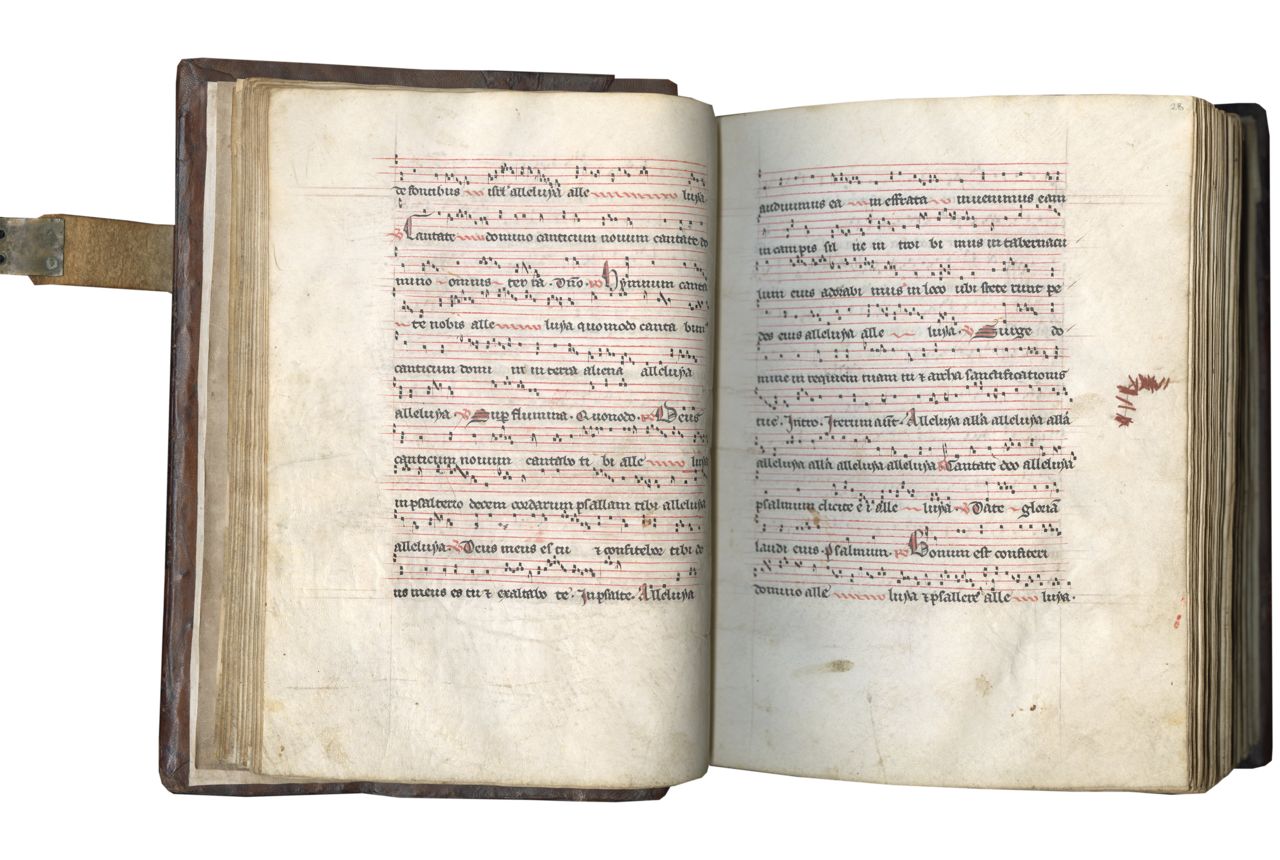 de fontibus isrl' alleluya alle luya.
V Cantate domino canticum novum cantate do
mino omnis terra. Dno. R Hymnum canta
te nobis alle luya quomodo canta bimus
canticum domi ni in terra aliena alleluya
alleluya. V Sup flumina. Quomodo. R Deus
canticum novum cantabo ti bi alle luya
in psalterio decem cordarum psallam tibi alleluya
alleluya. V Deus meus es tu & confitebor tibi de
us meus es tu & exaltabo te. In psalte. Alleluya
28
audivimus ea in effrata invenimus eam
in campis sil ve in troi bi mus in tabernacu
lum eius adorabi mus in loco ubi stete runt pe
des eius alleluya alle luya. V Surge do
mine in requiem tuam tu & archa sanctificationis
tue. Intro. Iterum aut. Alleluya alla alleluya alla
alleluya alla alleluya alleluya V Cantate deo alleluya
psalmum dicite ei alle luya. V Date gloriam
laudi eius. psalmum. R Bonum est confiteri
domino alle luya & psallere alle luya.